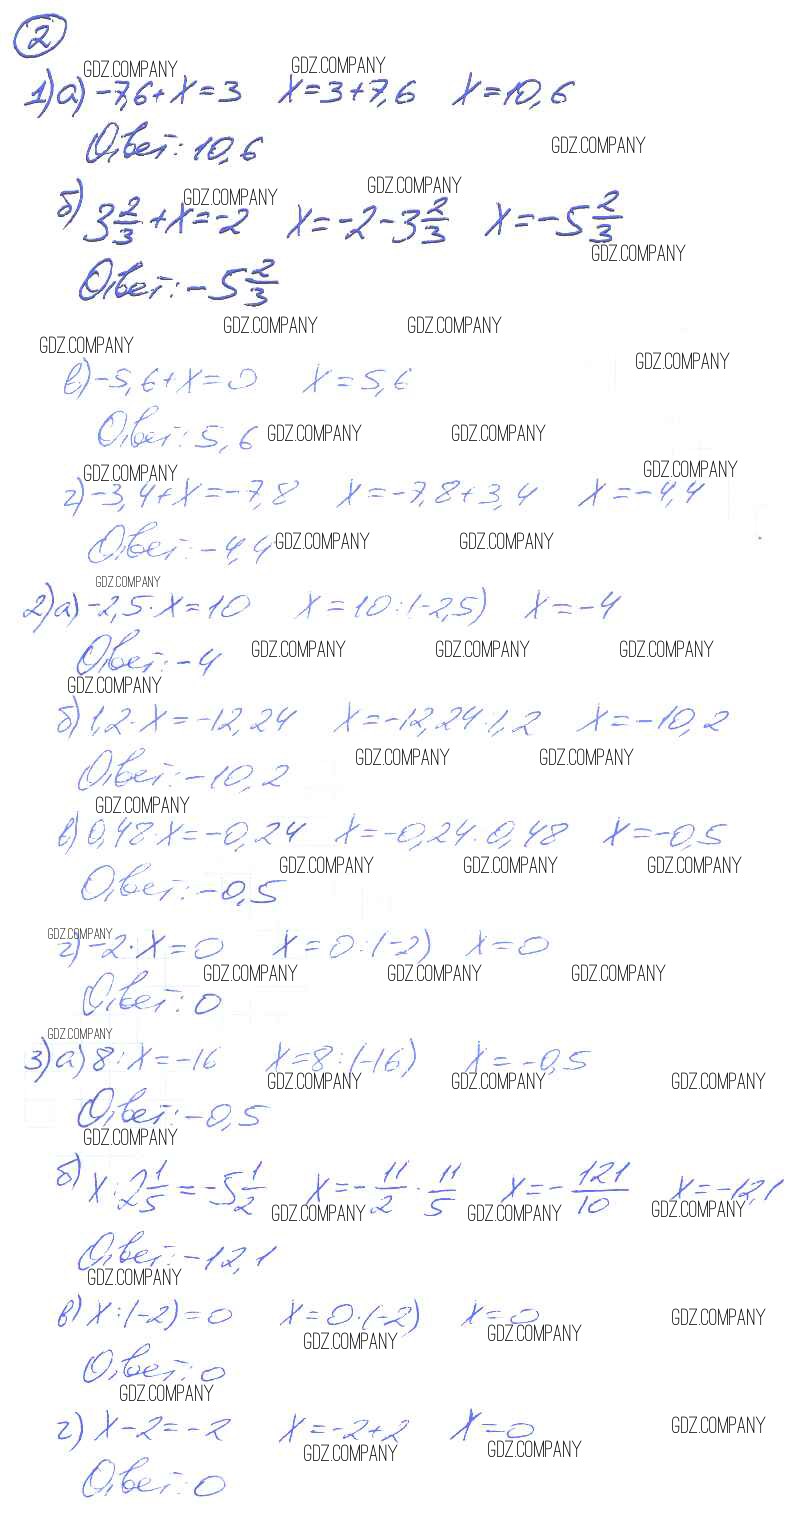 2
GDZ.COMPANY GDZ.COMPANY
1) а) -7,6+x=3 x=3+7,6 x=10,6
Ответ: 10,6 GDZ.COMPANY
GDZ.COMPANY GDZ.COMPANY
б) 3 2/3 + x = -2 x = -2 - 3 2/3 x = -5 2/3
GDZ.COMPANY
Ответ: -5 2/3
GDZ.COMPANY GDZ.COMPANY
GDZ.COMPANY GDZ.COMPANY
в) -5,6+x=0 x=5,6
Ответ: 5,6 GDZ.COMPANY GDZ.COMPANY
GDZ.COMPANY GDZ.COMPANY
г) -3,4+x=-7,8 x=-7,8+3,4 x=-4,4
Ответ: -4,4 GDZ.COMPANY GDZ.COMPANY
GDZ.COMPANY
2) а) -2,5·x=10 x=10:(-2,5) x=-4
Ответ: -4 GDZ.COMPANY GDZ.COMPANY GDZ.COMPANY
GDZ.COMPANY
б) 1,2·x=-12,24 x=-12,24:1,2 x=-10,2
GDZ.COMPANY GDZ.COMPANY
Ответ: -10,2
GDZ.COMPANY
в) 0,48·x=-0,24 x=-0,24:0,48 x=-0,5
GDZ.COMPANY GDZ.COMPANY GDZ.COMPANY
Ответ: -0,5
GDZ.COMPANY
г) -2·x=0 x=0:(-2) x=0
GDZ.COMPANY GDZ.COMPANY GDZ.COMPANY
Ответ: 0
GDZ.COMPANY
3) а) 8:x=-16 x=8:(-16) x=-0,5
GDZ.COMPANY GDZ.COMPANY GDZ.COMPANY
Ответ: -0,5
GDZ.COMPANY
б) x:2 1/5 = -5 1/2 x = -11/2 · 11/5 x = -121/10 x=-12,1
GDZ.COMPANY GDZ.COMPANY GDZ.COMPANY
Ответ: -12,1
GDZ.COMPANY
в) x:(-2)=0 x=0·(-2) x=0 GDZ.COMPANY
GDZ.COMPANY GDZ.COMPANY
Ответ: 0
GDZ.COMPANY
г) x-2=-2 x=-2+2 x=0 GDZ.COMPANY
GDZ.COMPANY GDZ.COMPANY
Ответ: 0